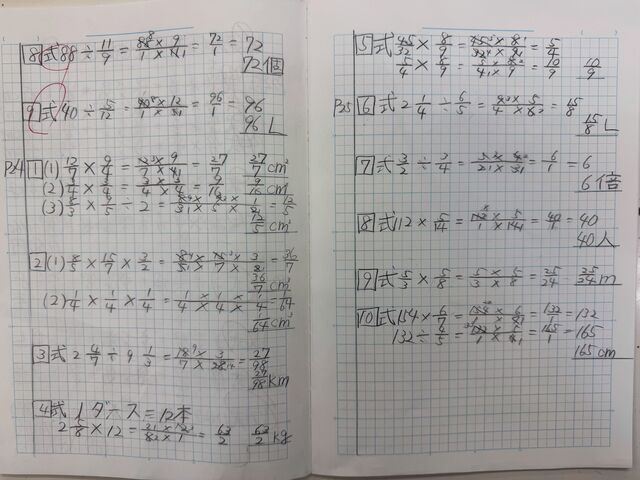 8 式 88 ÷ 11/9 = 88×9/1×11 = 72/1 = 72
72個
9 式 40 ÷ 5/12 = 40×12/1×5 = 96/1 = 96
96 L
P24 1 (1) 12/7 × 9/4 = 12×9/7×4 = 27/7 27/7 cm²
(2) 3/4 × 3/4 = 3×3/4×4 = 9/16 9/16 cm²
(3) 8/3 × 9/5 ÷ 2 = 8×9×1/3×5×2 = 12/5
12/5 cm²
2 (1) 8/5 × 15/7 × 3/2 = 8×15×3/5×7×2 = 36/7
36/7 cm³
(2) 1/4 × 1/4 × 1/4 = 1×1×1/4×4×4 = 1/64
1/64 cm³
3 式 2 4/7 ÷ 9 1/3 = 18×3/7×28 = 27/98
27/98 km
4 式 1ダース=12本
2 5/8 × 12 = 21×12/8×1 = 63/2 63/2 kg
5 式 45/32 × 8/9 = 45×8/32×9 = 5/4
5/4 × 8/9 = 5×8/4×9 = 10/9 10/9
P25 6 式 2 1/4 ÷ 6/5 = 9×5/4×6 = 15/8
15/8 L
7 式 3/2 ÷ 1/4 = 3×4/2×1 = 6/1 = 6
6倍
8 式 112 × 5/14 = 112×5/1×14 = 40/1 = 40
40人
9 式 5/3 × 5/8 = 5×5/3×8 = 25/24 25/24 m
10 式 154 × 6/7 = 154×6/1×7 = 132/1 = 132
132 ÷ 4/5 = 132×5/1×4 = 165/1 = 165
165 cm